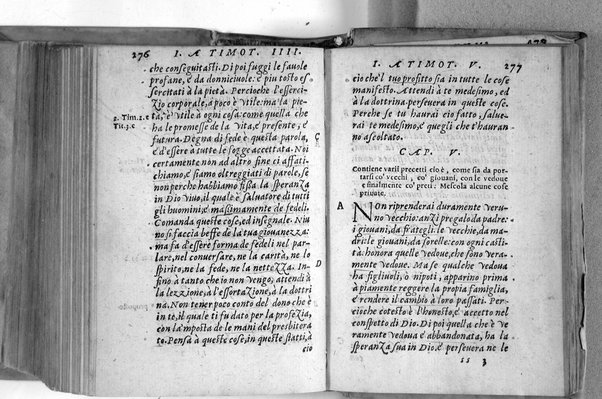 276 I. A TIMOT. IIII.
che conseguitasti. Di poi fuggi le fauole
profane, & da donniciuole: & piu tosto es
sercitati à la pietà. Percioche l'esserci
tio corporale, à poco è vtile: ma la pie-
2. Tim. 2. c
Tit. 3. c
tà, è vtile à ogni cosa: come quella che
ha le promesse de la vita, & presente, &
futura. Degna di fede è questa parola,
C
& d'essere à tutte le fogge accettata. Noi
certamente non ad altro fine ci affati-
chiamo, & siamo oltreggiati di parole, se
non perche habbiamo fissa la speranza
in Dio viuo, il quale è saluatore di tutti
gli huomini, & massimamente de fedeli.
Comanda queste cose, ed insegnale. Niu
no si faccia beffe de la tua giouanezza:
ma fa d'essere forma de fedeli nel par-
lare, nel conuersare, ne la carità, ne lo
spirito, ne la fede, ne la nettezza. In-
D
fino à tanto che io non vengo, attendi à
la lezzione, à l'essortazione, à la dottri
na. Non tener poco conto del dono che è
in te, il quale ti fu dato per la profezia,
con la imposta de le mani del presbitera
to. Pensa à queste cose, in queste statti, à
cio
I. A TIMOT. V. 277
cio che'l tuo profitto sia in tutte le cose
manifesto. Attendi à te medesimo, ed
à la dottrina. perseuera in queste cose.
Perche se tu haurai cio fatto, salue-
rai te medesimo, & quegli che t'hauran
no ascoltato.
CAP. V.
Contiene varii precetti cioè, come sia da por-
tarsi co' vecchi, co' giouani, con le vedoue
e finalmente co' preti. Mescola alcune cose
priuate.
A
Non riprenderai duramente veru-
no vecchio: anzi pregalo da padre.
i giouani, da frategli. le vecchie, da ma-
dri. le giouani, da sorelle: con ogni casti-
tà. honora quelle vedoue, che sono vera
mente vedoue. Ma se qualche vedoua
ha figliuoli, ò nipoti, apparino prima
à piamente reggere la propria famiglia,
& rendere il cambio à loro passati. Per-
cioche cotesto è l'honesto, & accetto nel
conspetto di Dio. Di poi quella che è ve
ramente vedoua & abbandonata, ha la
speranza sua in Dio, & perseuera ne le
ss 3